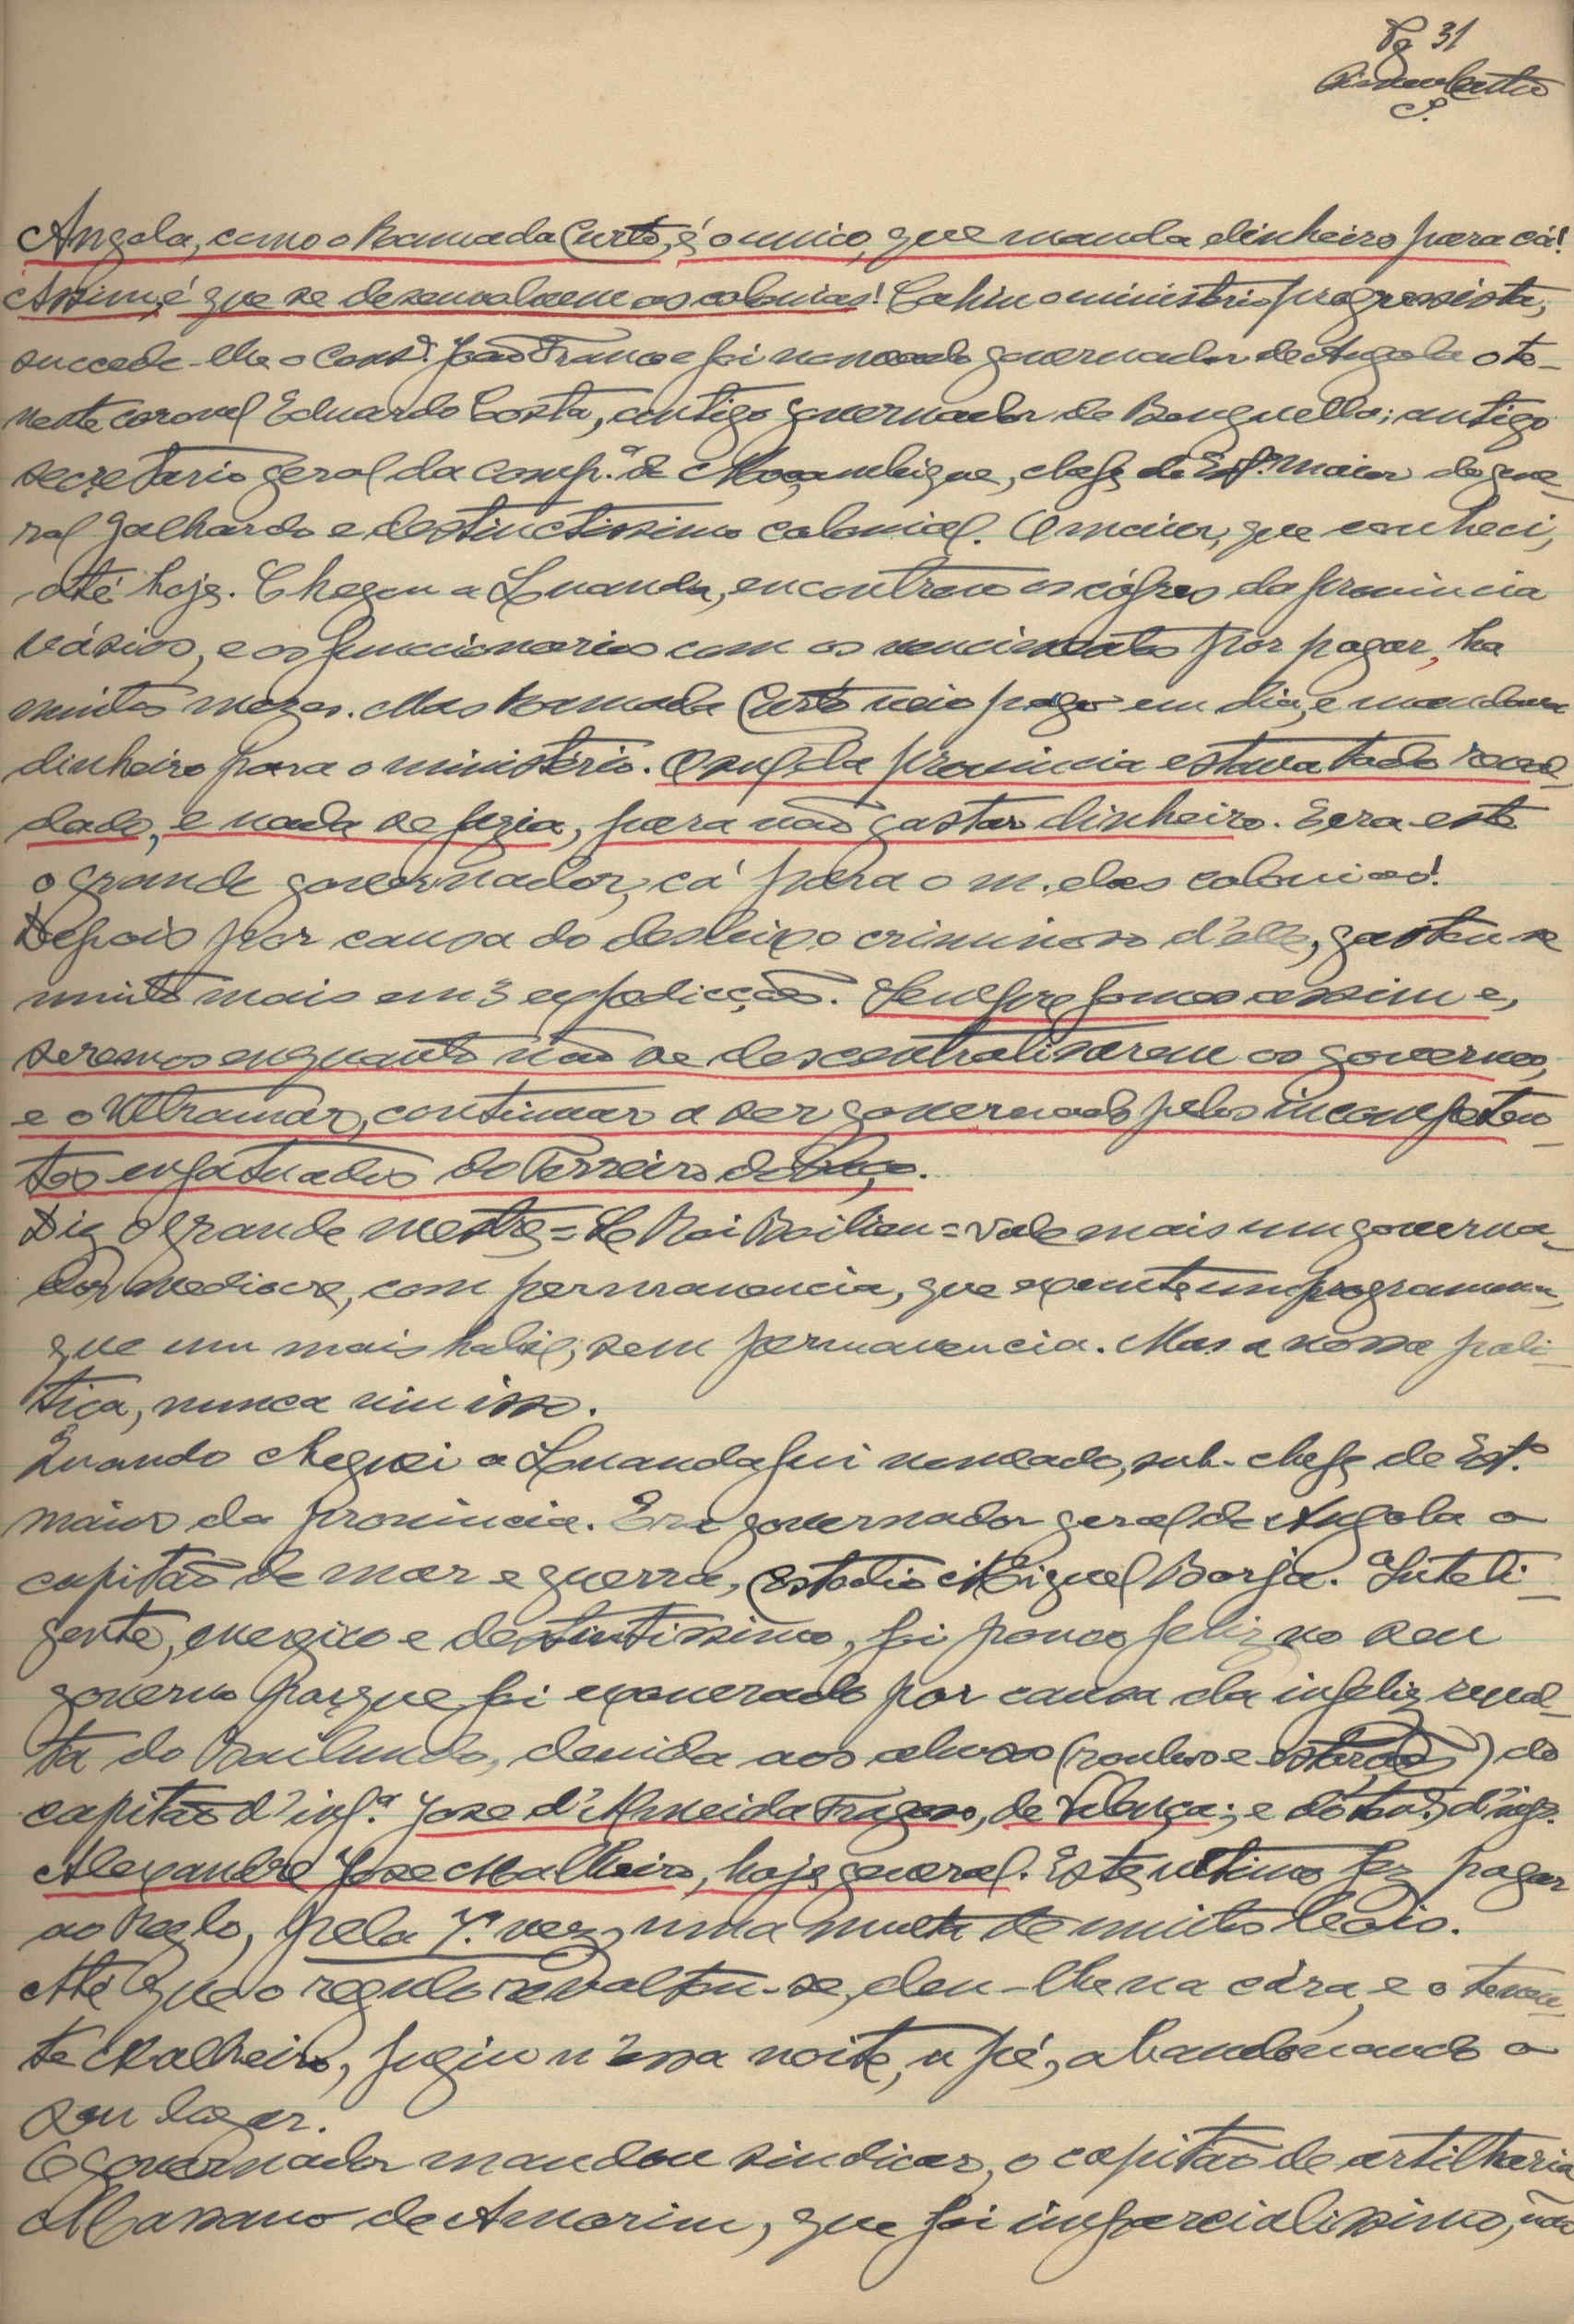 Pg 31
Angola, como o Ramada Curto, é o unico, que manda dinheiro para cá!
Assim, é que se desenvolvem as colonias! Cahiu o ministério progressista,
succede-lhe o Consº. João Franco e foi nomeado governador de Angola o te-
nente coronel Eduardo Costa, antigo governador de Benguella; antigo
secretario geral da Comp.ª de Moçambique, chefe do Estº. maior do gene-
ral Galhardo e destinctissimo colonial. O maior, que conheci,
até hoje. Chegou a Luanda, encontrou os cófres da provincia
vásios, e os funccionarios com os vencimentos por pagar, ha
muitos mezes. Mas Ramada Curto veio pago em dia, e mandava
dinheiro para o ministério. O sul da provincia estava todo revol-
dado, e nada se fazia, para não gastar dinheiro. Era este
o grande governador, cá para o m. das colonias!
Depois por causa do desleixo criminoso d'elle, gastou se
muito mais em 3 expedicções. Sempre fomos assim e,
seremos enquanto não se descentralisarem os governos,
e o Ultramar, continuar a ser governado pelos incompeten-
tes enfatuados do Terreiro do Paço.
Diz o grande mestre = Le Roi Boilieu = vale mais um governa-
dor mediocre, com permanencia, que execute um programma,
que um mais habil, sem permanencia. Mas a nossa poli-
tica, nunca viu isso.
Quando cheguei a Luanda fui nomeado, sub-chefe de Estº.
maior da provincia. Era governador geral de Angola o
capitão de mar e guerra, Custodio Miguel Borja. Inteli-
gente, energico e destintissimo, foi pouco feliz no seu
governo porque foi exonerado por causa da infeliz revol-
ta do Bailundo, devida aos abusos (roubos e ) do
capitão d'infª. Jose d'Almeida Fragoso, de Valença; e do tenº. d'inf.
Alexandre Jose Malheiro, hoje general. Este ultimo fez pagar
ao Reglo, pela 7ª. vez, uma multa de muitos bois.
Até que o regulo revoltou-se, deu-lhe na cára, e o tenen-
te Malheiro, fugiu n'essa noite, a pé, abandonando o
seu lugar.
O governador mandou sindicar, o capitão de artilharia
Massano de Amorim, que foi imparcialissimo, não